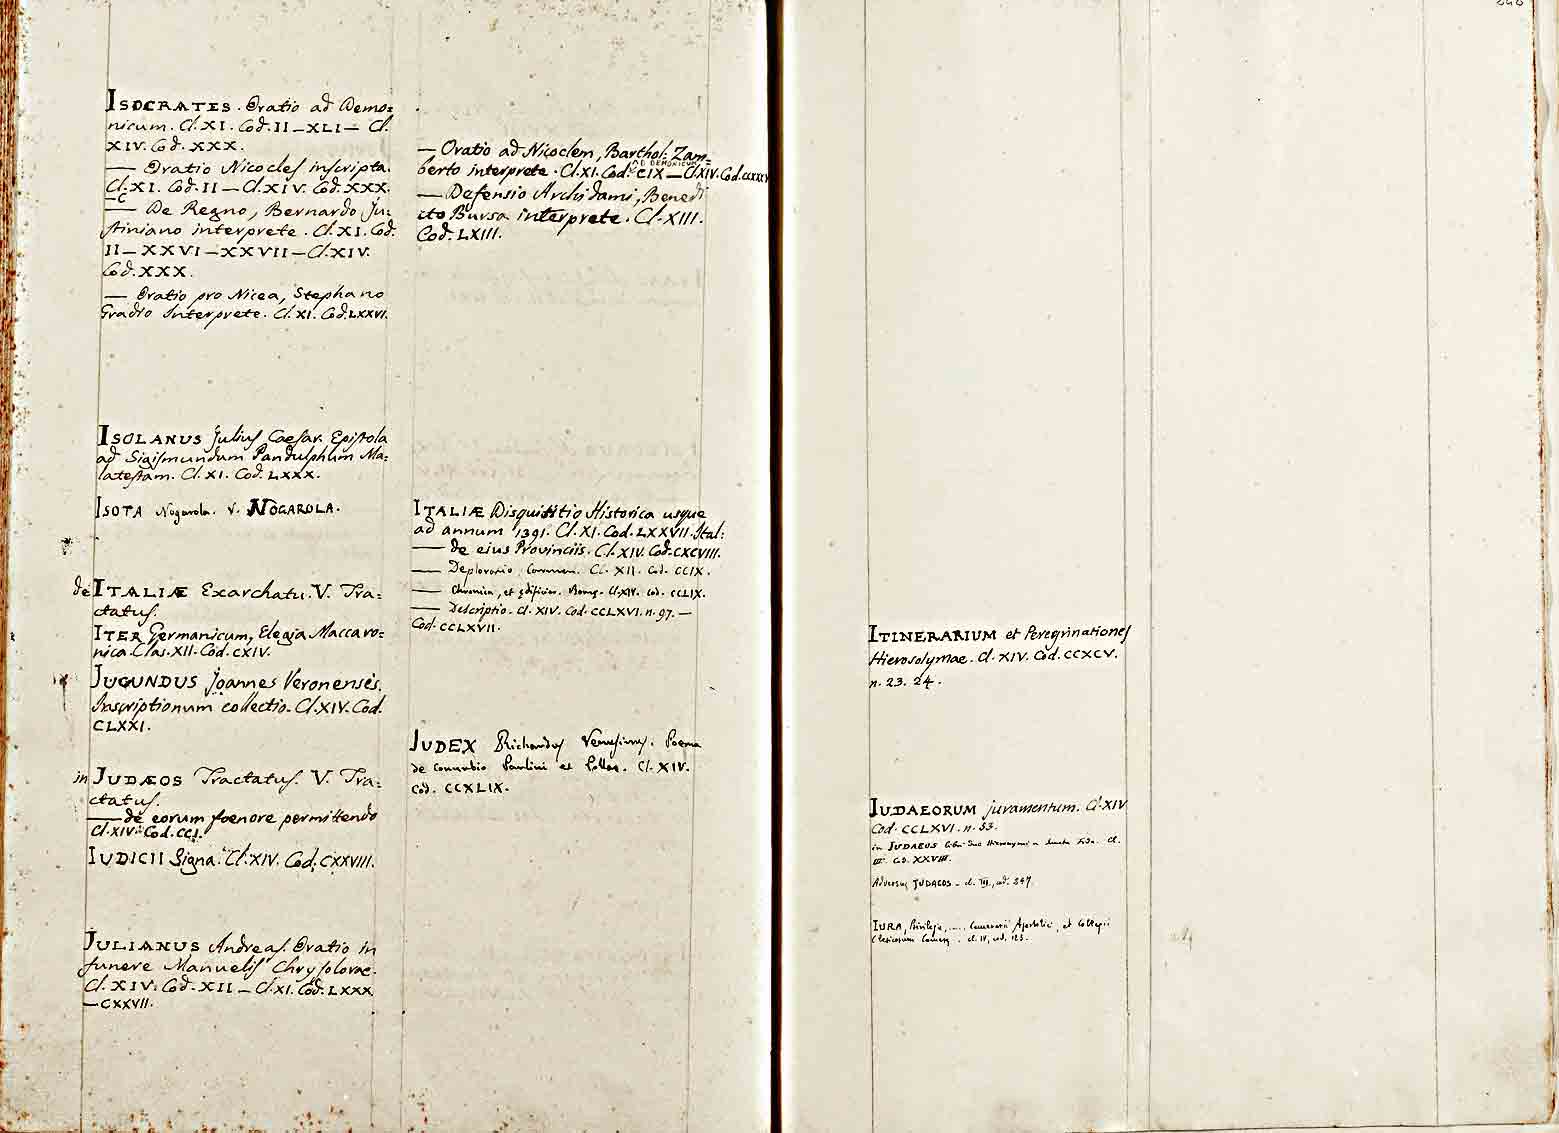 ISOCRATES. Oratio ad Demo=
nicum. Cl. XI. Cod. II — XLI — Cl.
XIV. Cod. XXX.
— Oratio Nicocles inscripta.
Cl. XI. Cod. II — Cl. XIV. Cod. XXX.
— C
— De Regno, Bernardo Ju=
stiniano interprete. Cl. XI. Cod.
II — XXVI — XXVII — Cl. XIV.
Cod. XXX.
— Oratio pro Nicea, Stephano
Gradio Interprete. Cl. XI. Cod. LXXVI.
ISOLANUS Julius Caesar. Epistola
ad Sigismundum Pandulphum Ma=
latestam. Cl. XI. Cod. LXXX.
ISOTA Nogarola. V. NOGAROLA.
de ITALIÆ Exarchatu. V. Tra=
ctatus.
ITER Germanicum, Elegia Maccaro=
nica. Clas. XII. Cod. CXIV.
JUCUNDUS Joannes Veronensis.
Inscriptionum collectio. Cl. XIV. Cod.
CLXXI.
in JUDÆOS Tractatus. V. Tra=
ctatus.
— de eorum foenore permittendo
Cl. XIV. Cod. CCI.
IUDICII Signa. Cl. XIV. Cod. CXXVIII.
JULIANUS Andreas. Oratio in
funere Manuelis Chrysolorae.
Cl. XIV. Cod. XII — Cl. XI. Cod. LXXX
— CXXVII.
— Oratio ad Nicoclem, Barthol: Zam=
AD DEMONICUM
berto interprete. Cl. XI. Cod. CIX — Cl. XIV. Cod.
— Defensio Archidami, Benedi
cto Bursa interprete. Cl. XIII.
Cod. LXIII.
ITALIÆ Disquisitio Historica usque
ad annum 1391. Cl. XI. Cod. LXXVII. Ital:
— de eius Provinciis. Cl. XIV. Cod. CXCVIII.
— Deploratio, Cl. XII. Cod. CCIX.
— Chronica, et Cl. XIV. Cod. CCLIX.
— Descriptio. Cl. XIV. Cod. CCLXVI. n. 97. —
Cod. CCLXVII.
JUDEX Richardus Venusinus. Poema
de connubio Paulini et Pollae. Cl. XIV.
Cod. CCXLIX.
ITINERARIUM et Peregrinationes
Hierosolymae. Cl. XIV. Cod. CCXCV.
n. 23. 24.
IUDAEORUM juramentum. Cl. XIV
Cod. CCLXVI. n. 53.
in JUDAEOS Hieronymi a Sancta Fide. Cl.
III. Cod. XXVIII.
Adversus JUDAEOS — cl. III, cod. 247.
IURA, Privilegia, ..... Apostolici, et Collegii
Clericorum cl. IV, cod. 123.